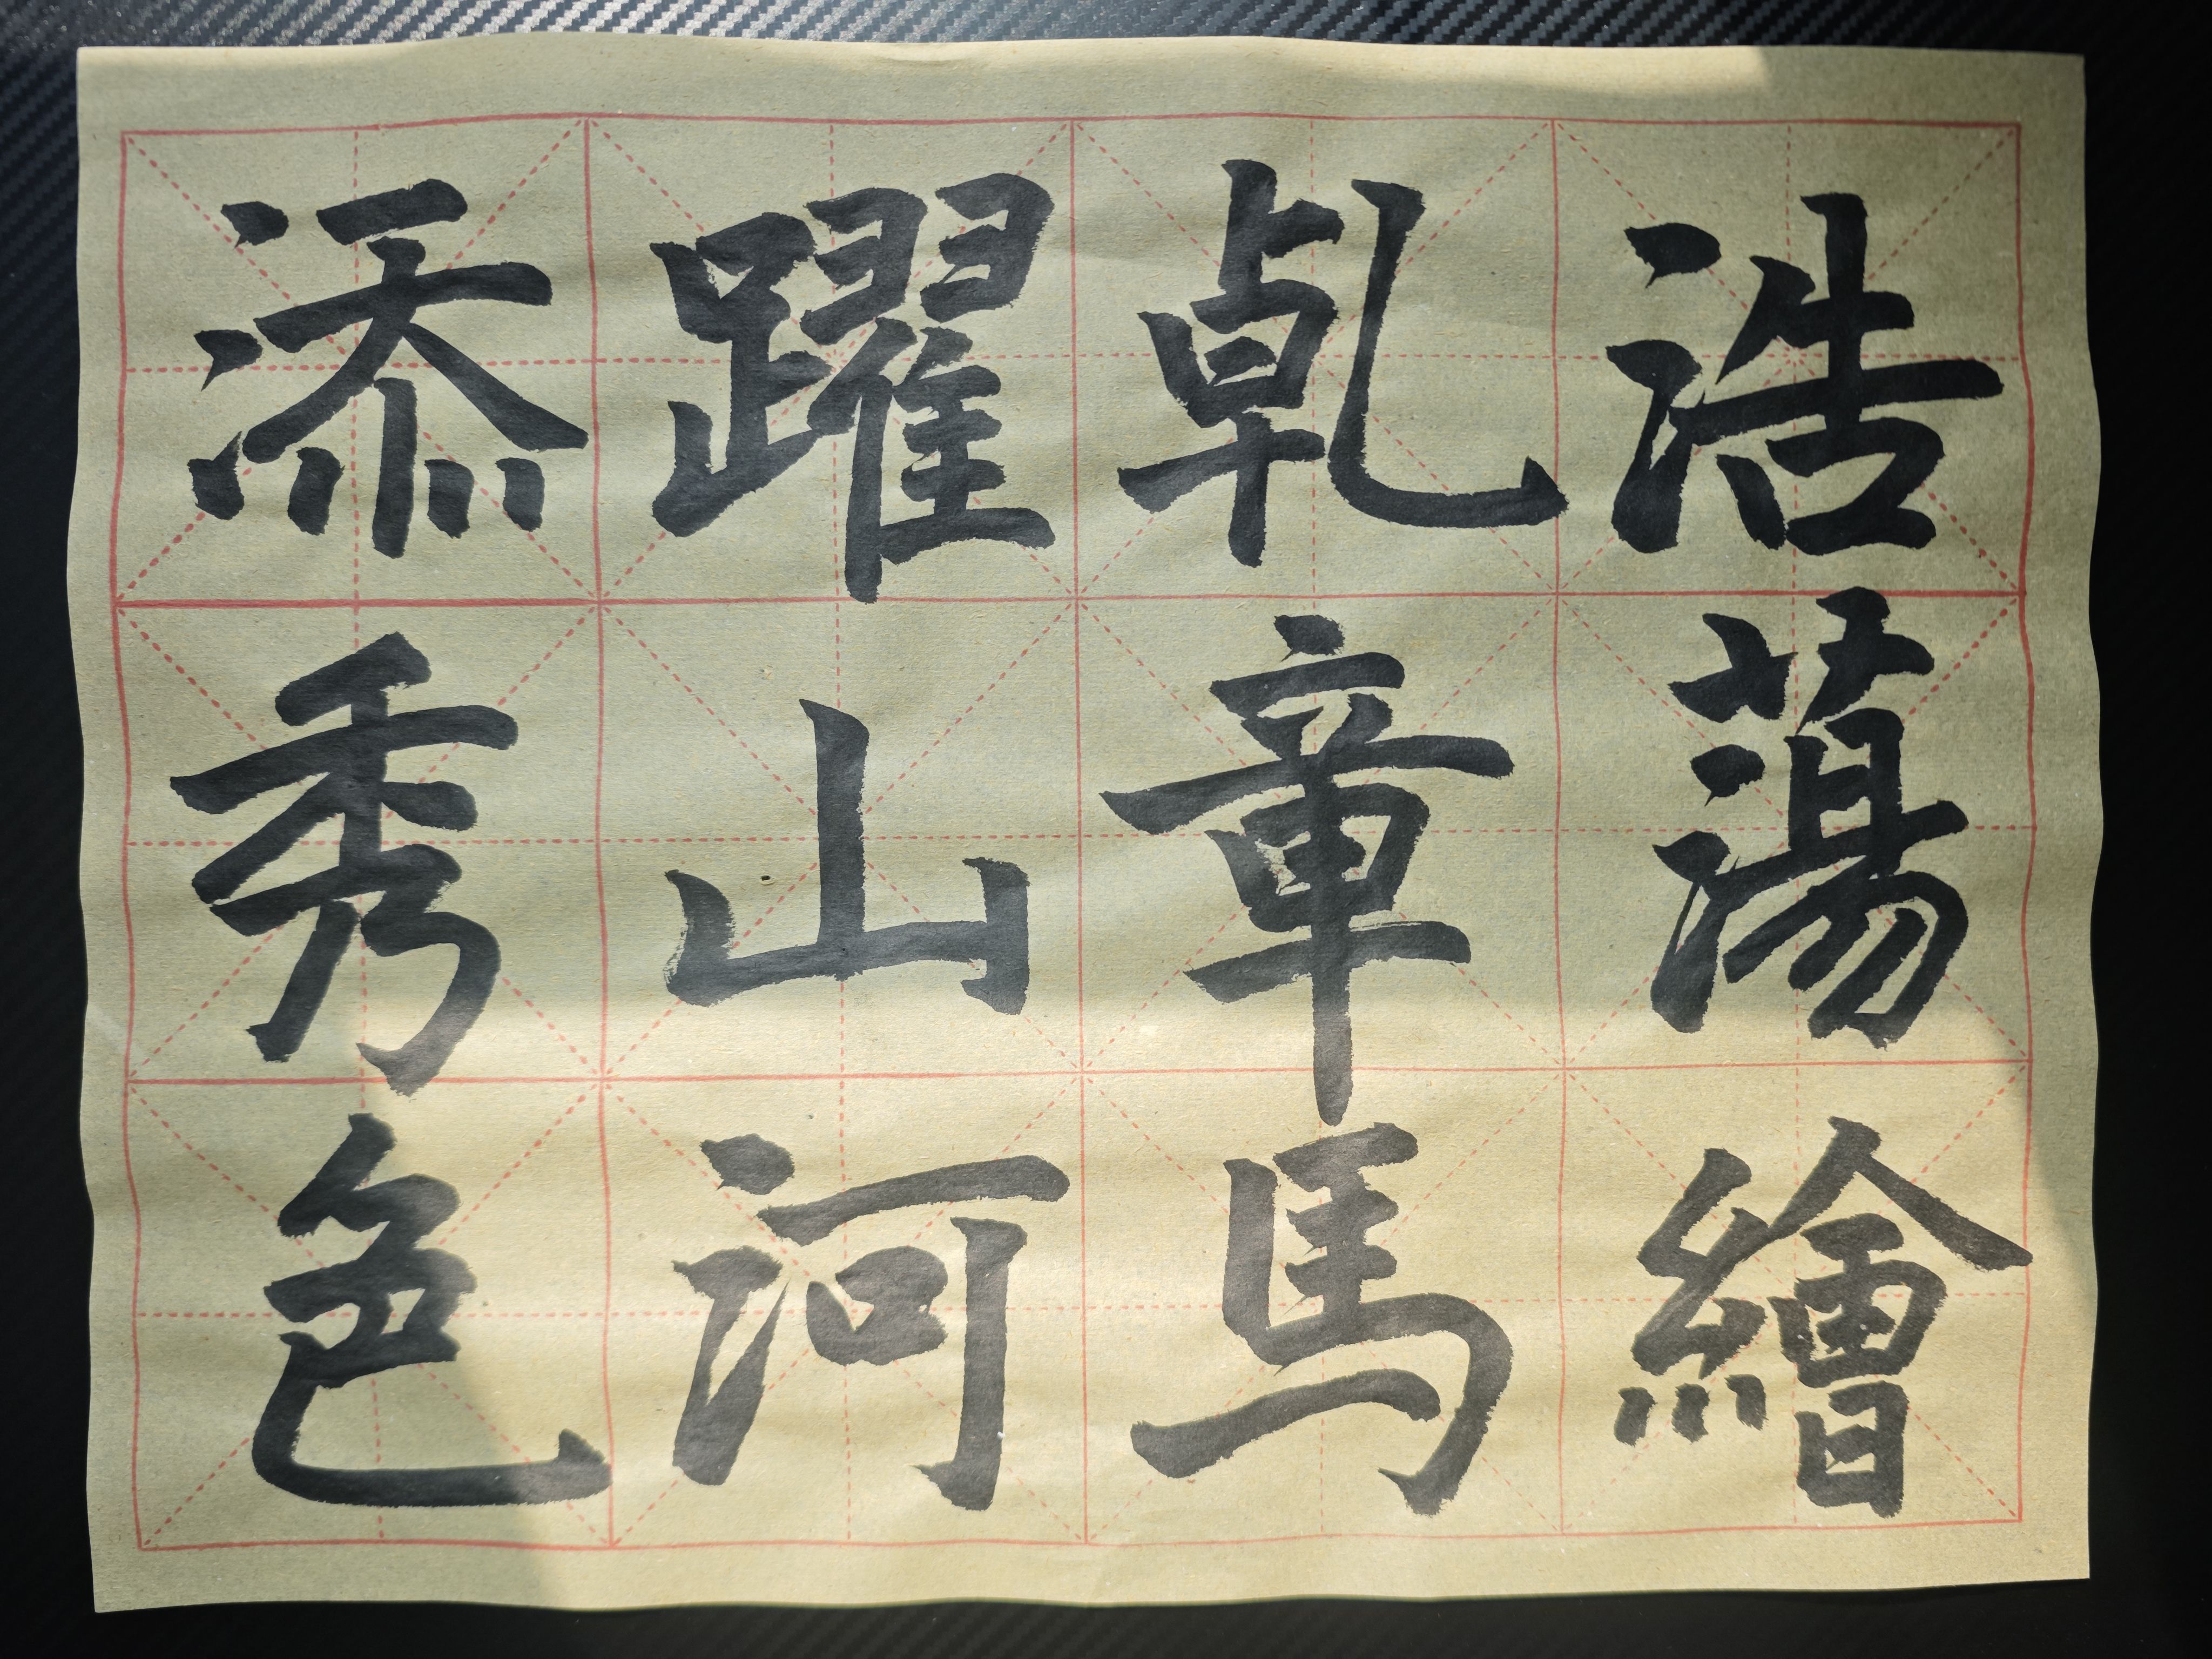 浩蕩繪
乹章馬
躍山河
添秀色